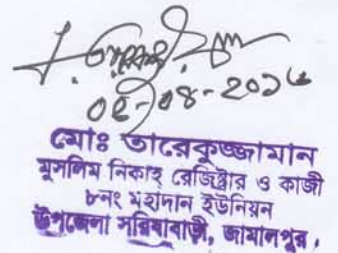 ০৫-০৪-২০১৬
মোঃ তারেকুজ্জামান
মুসলিম নিকাহ্ রেজিষ্ট্রার ও কাজী
৮নং মহাদান ইউনিয়ন
উপজেলা সরিষাবাড়ী, জামালপুর।